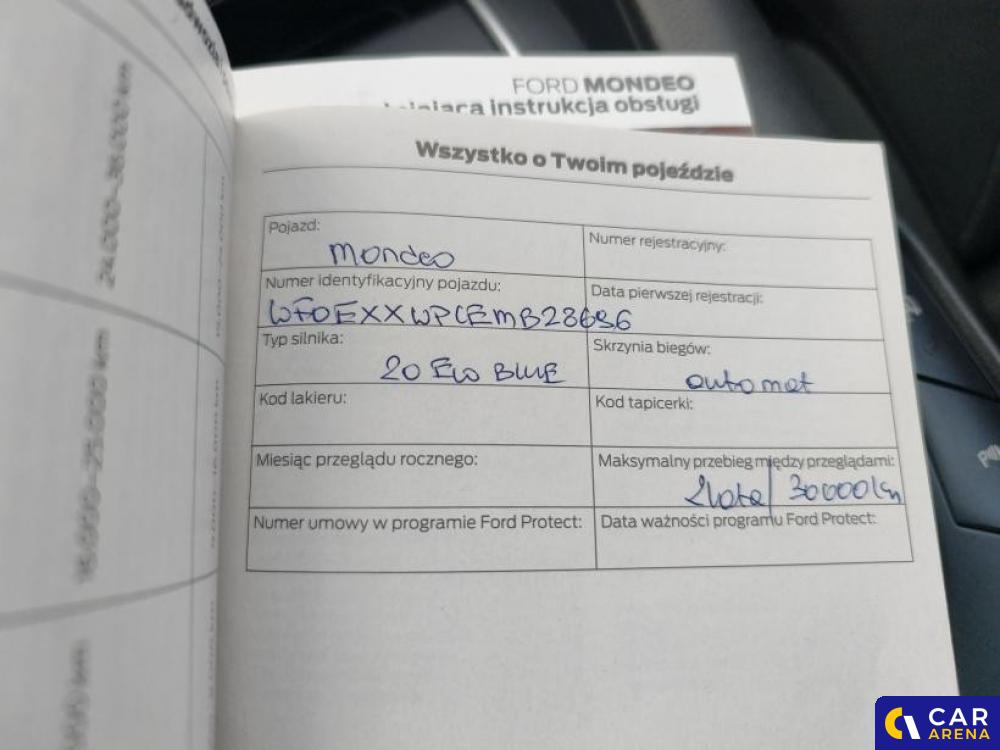 FORD MONDEO
instrukcja obsługi
24.000–35.000 km
15.000–25.000 km
Wszystko o Twoim pojeździe
Pojazd:
Mondeo
Numer rejestracyjny:
Numer identyfikacyjny pojazdu:
WF0EXXWPCEMB28656
Data pierwszej rejestracji:
Typ silnika:
20 Eco BLUE
Skrzynia biegów:
automat
Kod lakieru:
Kod tapicerki:
Miesiąc przeglądu rocznego:
Maksymalny przebieg między przeglądami:
2lata/30000km
Numer umowy w programie Ford Protect:
Data ważności programu Ford Protect:
CAR
ARENA